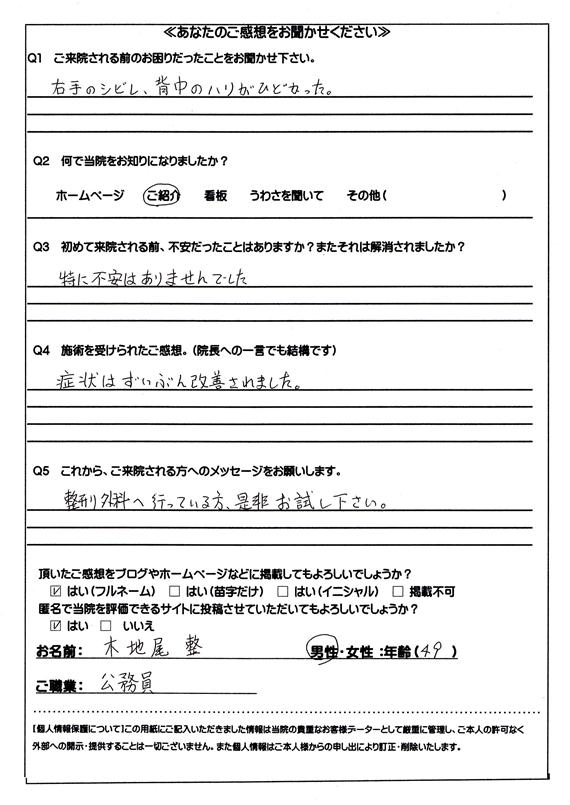 ≪あなたのご感想をお聞かせください≫
Q1 ご来院される前のお困りだったことをお聞かせ下さい。
右手のシビレ、背中のハリがひどかった。
Q2 何で当院をお知りになりましたか？
ホームページ ご紹介 看板 うわさを聞いて その他( )
Q3 初めて来院される前、不安だったことはありますか？またそれは解消されましたか？
特に不安はありませんでした
Q4 施術を受けられたご感想。(院長への一言でも結構です)
症状はずいぶん改善されました。
Q5 これから、ご来院される方へのメッセージをお願いします。
整形外科へ行っている方、是非お試し下さい。
頂いたご感想をブログやホームページなどに掲載してもよろしいでしょうか？
☑ はい(フルネーム) □ はい(苗字だけ) □ はい(イニシャル) □ 掲載不可
匿名で当院を評価できるサイトに投稿させていただいてもよろしいでしょうか？
☑ はい □ いいえ
お名前： 木地尾 整 男性・女性：年齢(49)
ご職業： 公務員
【個人情報保護について】この用紙にご記入いただきました情報は当院の貴重なお客様データーとして厳重に管理し、ご本人の許可なく
外部への開示・提供することは一切ございません。また個人情報はご本人様からの申し出により訂正・削除いたします。